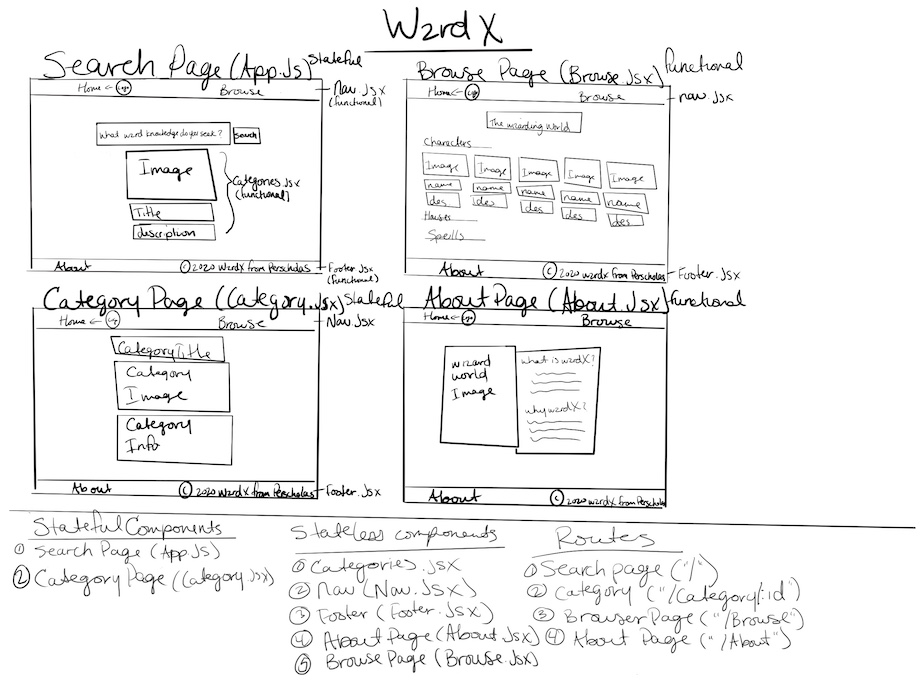 WzrdX
Search Page (App.js) Stateful
Home ← Logo Browse
Nav.Jsx
(functional)
What wzrd knowledge do you seek? Search
Image
Title
description
Categories.Jsx
(functional)
About © 2020 WzrdX from Perscholas
Footer.Jsx
(functional)
Browse Page (Browse.Jsx) functional
Home ← Logo Browse
nav.Jsx
The Wizarding World
Characters
Image Image Image Image Image
name name name name name
des des des des des
Houses
Spells
About © 2020 wzrdX from Perscholas
Footer.Jsx
Category Page (Category.Jsx) Stateful
Home ← Logo Browse
Nav.Jsx
Category Title
Category
Image
Category
Info
About © 2020 wzrdX from Perscholas
Footer.Jsx
About Page (About.Jsx) functional
Home ← Logo Browse
wizard
world
Image
What is wzrdX?
why wzrdX?
About © 2020 wzrdX from Perscholas
Stateful Components
① Search Page (App.Js)
② Category Page (Category.Jsx)
Stateless components
① Categories.Jsx
② Nav (Nav.JSX)
③ Footer (Footer.JSX)
④ About Page (About.Jsx)
⑤ Browse Page (Browse.Jsx)
Routes
① Search page ("/")
② Category ("/Category/:id")
③ Browser Page ("/Browse")
④ About Page ("/About")